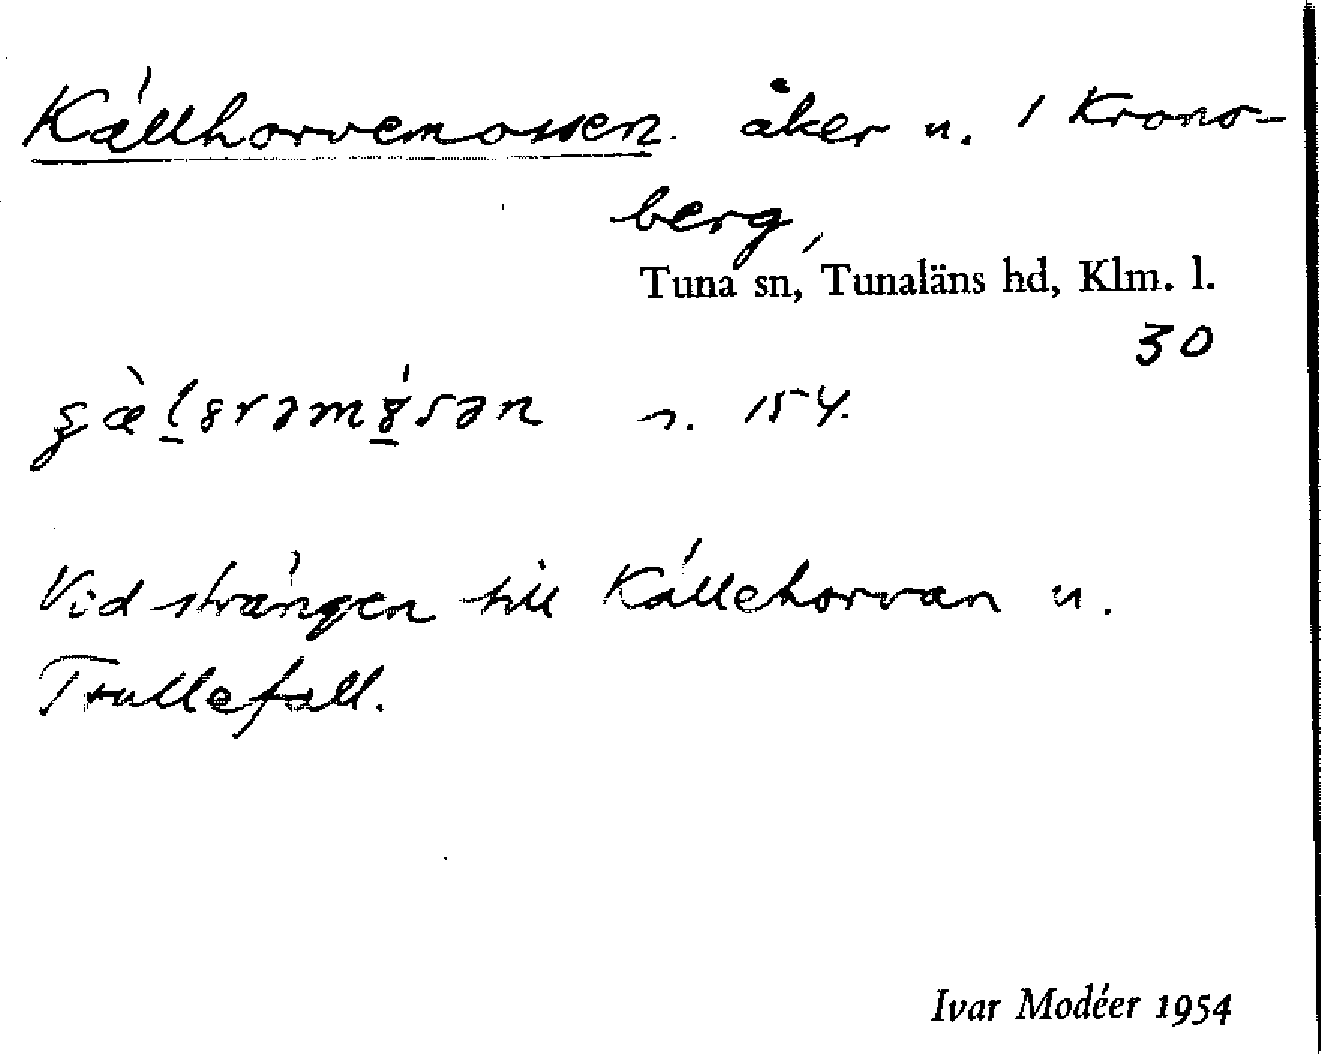 Källhorvemossen. åker u. 1 Krono-
berg,
Tuna sn, Tunaläns hd, Klm. l.
30
n. 154.
Vid strängen till Källehorvan u.
Trullefall.
Ivar Modéer 1954